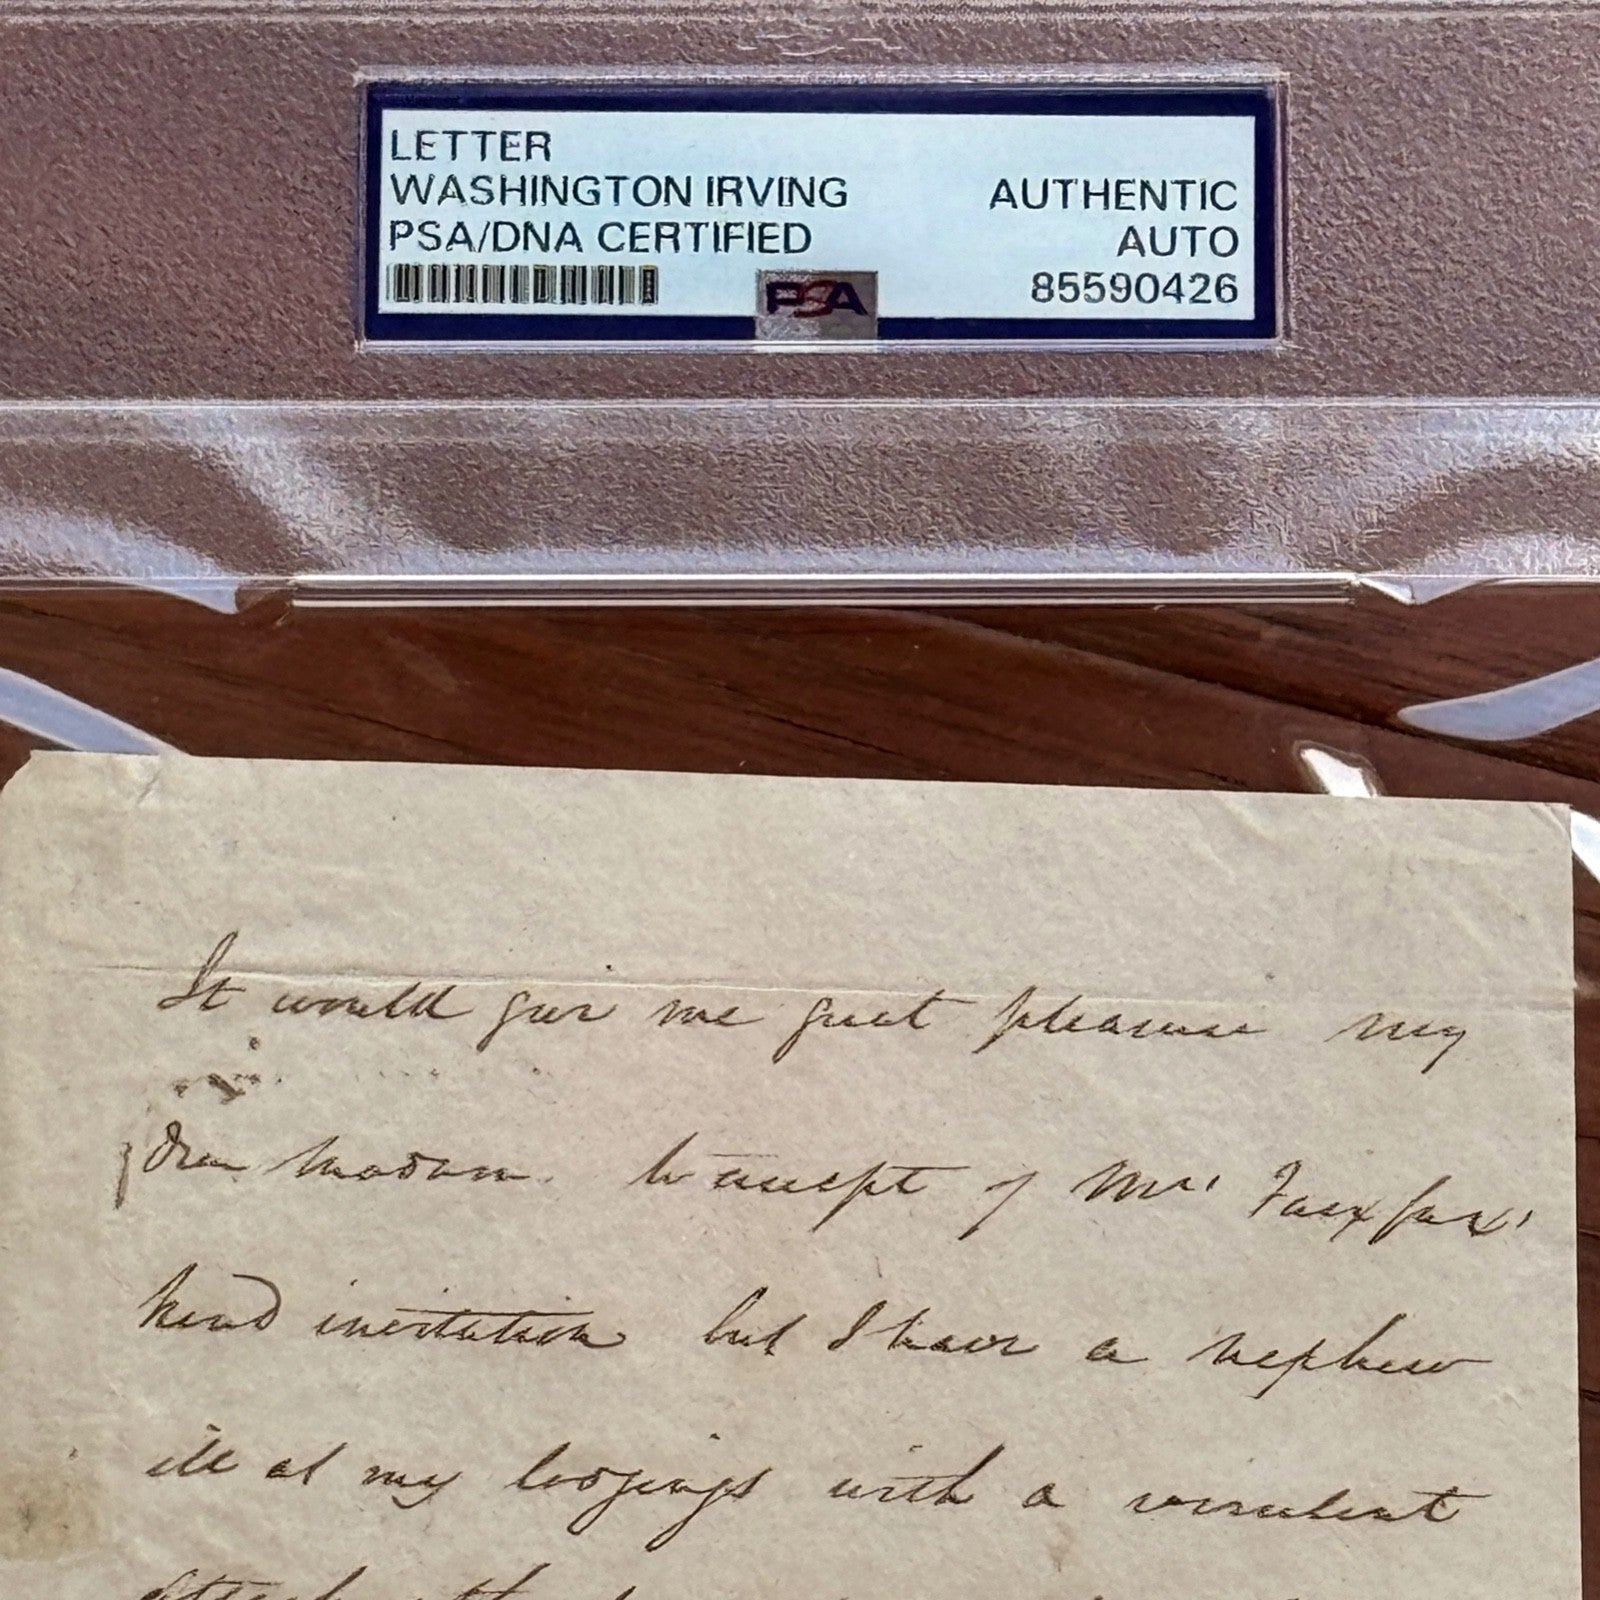 LETTER
WASHINGTON IRVING
PSA/DNA CERTIFIED
AUTHENTIC
AUTO
85590426
PSA
It would give me great pleasure my
dear Madam. to accept of Mrs Fairfax'
kind invitation but I have a nephew
ill at my lodgings with a virulent
attack